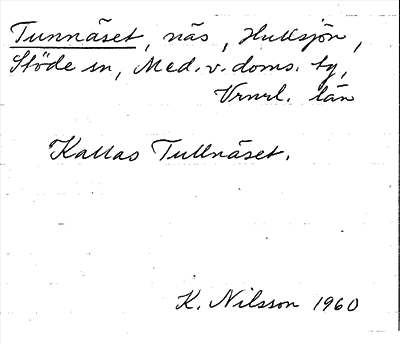 Tunnäset, näs, Hullsjön,
Stöde sn, Med. v. doms. tg,
Vrnrl. län
Kallas Tullnäset.
K. Nilsson 1960